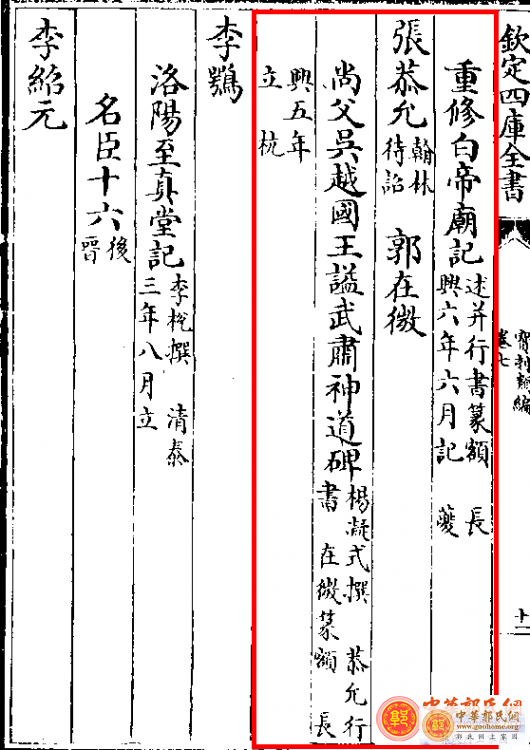 欽定四庫全書
寶刻類編
卷七
十一
重修白帝廟記 述并行書篆額 長興六年六月記 夔
張恭允 翰林待詔 郭在微
尚父吳越國王謚武肅神道碑 楊凝式撰 恭允行書 在微篆額 長
興五年立 杭
李鶚
洛陽至真堂記 李梲撰 清泰三年八月立
名臣十六 後晉
李紿元
中華郭氏網
中華郭氏網
www.guohome.org
郭氏網上家園